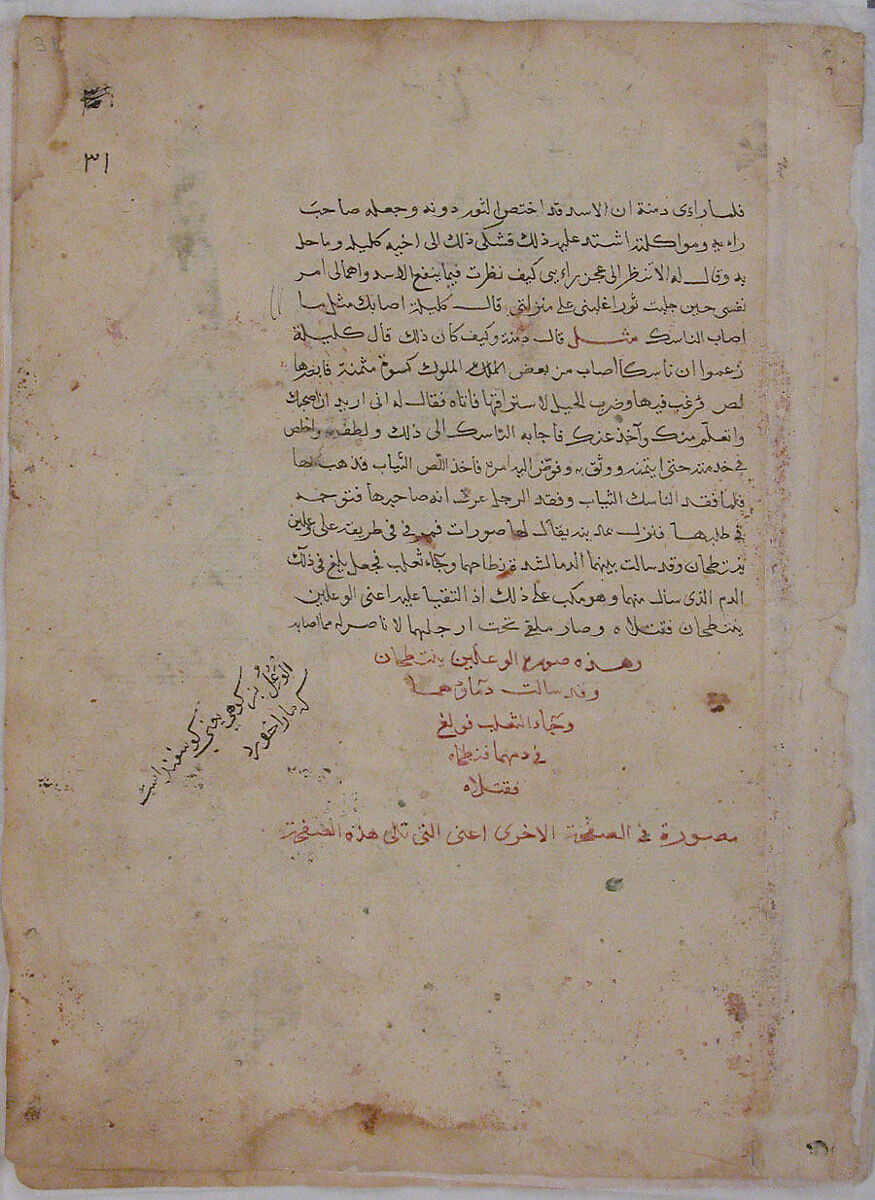 ٣١
فلما راءى دمنة ان الاسد قد اختص الثور دونه وجعله صاحب
راءيه ومواكلته اشتد عليه ذلك فشكى ذلك الى اخيه كليله وما حل
به وقال له الا تنظر الى عجز راءيي كيف نظرت فيما ينفع الاسد واهمالى امر
نفسى حين جلبت ثورا غلبنى على منزلتى قال كليلة اصابك مثل ما
اصاب الناسك مثل قال دمنة وكيف كان ذلك قال كليلة
زعموا ان ناسكا اصاب من بعض الملوك كسوة مثمنة فابصرها
لص فرغب فيها وضرب الحيل لاستراقها فاتاه فقال له انى اريد ان اصحبك
واتعلم منك وآخذ عنك فاجابه الناسك الى ذلك ولطف به واخلص
فى خدمته حتى ايتمنه ووثق به وفوض اليه امره فاخذ اللص الثياب فذهب بها
فلما فقد الناسك الثياب وفقد الرجل عرف انه صاحبها فتوجه
فى طلبها فنزل بمدينة يقال لها صورات فمر فى فى طريقه على وعلين
ينتطحان وقد سالت بينهما الدما لشدة نطاحهما وجاء ثعلب فجعل يلغ فى ذلك
الدم الذى سال منهما وهو مكب على ذلك اذ التقيا عليه اعنى الوعلين
ينتطحان فقتلاه وصار ملقى تحت ارجلهما لا ناصر له مما اصابه
وهذه صورة الوعلين ينتطحان
وقد سالت دماؤهما
وجاء الثعلب فولغ
فى دمهما فنطحاه
فقتلاه
مصورة فى الصفحة الاخرى اعنى التى تلى هذه الصفحة
الوعل بز كوهي يعني كوسفند است
كه مار اخورد